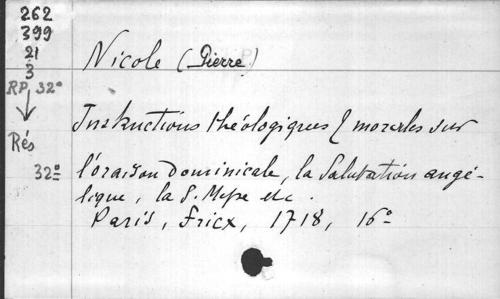 262
399
21
3
RP 32°
Rés
32°
Nicole (Pierre)
Instructions théologiques & morales sur
l'oraison dominicale, la Salutation angé-
lique, la S. Messe etc.
Paris, Fricx, 1718, 16°